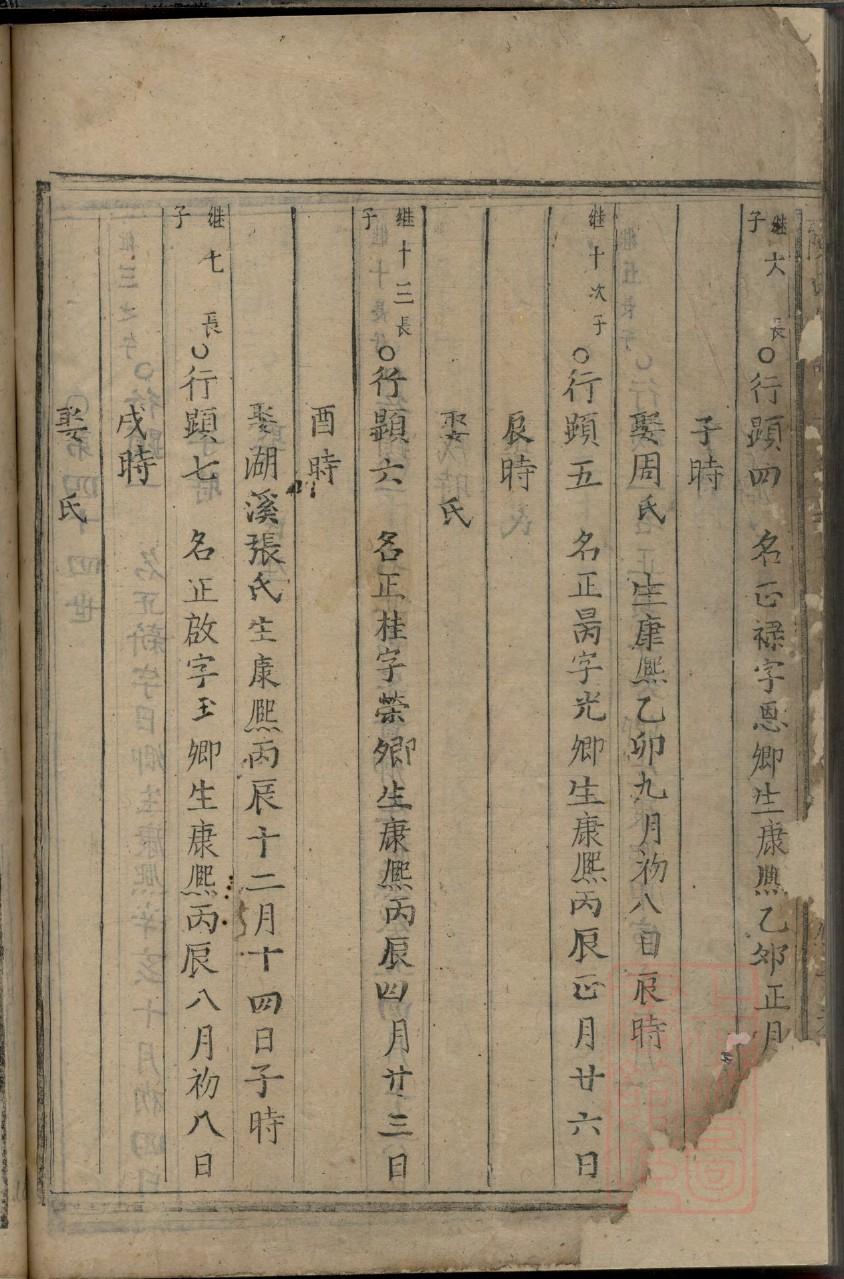 継六長子○行顕四名正禄字恩卿生康熈乙夘正月
子時
娶周氏生康熈乙卯九月初八日辰時
継十次子○行顕五名正昺字光卿生康熈丙辰正月廿六日
辰時
娶氏
継十三長子○行顕六名正桂字榮卿生康熈丙辰四月廿三日
酉時
娶湖溪張氏生康熈丙辰十二月十四日子時
継七長子○行顕七名正啟字玉卿生康熈丙辰八月初八日
戌時
娶氏